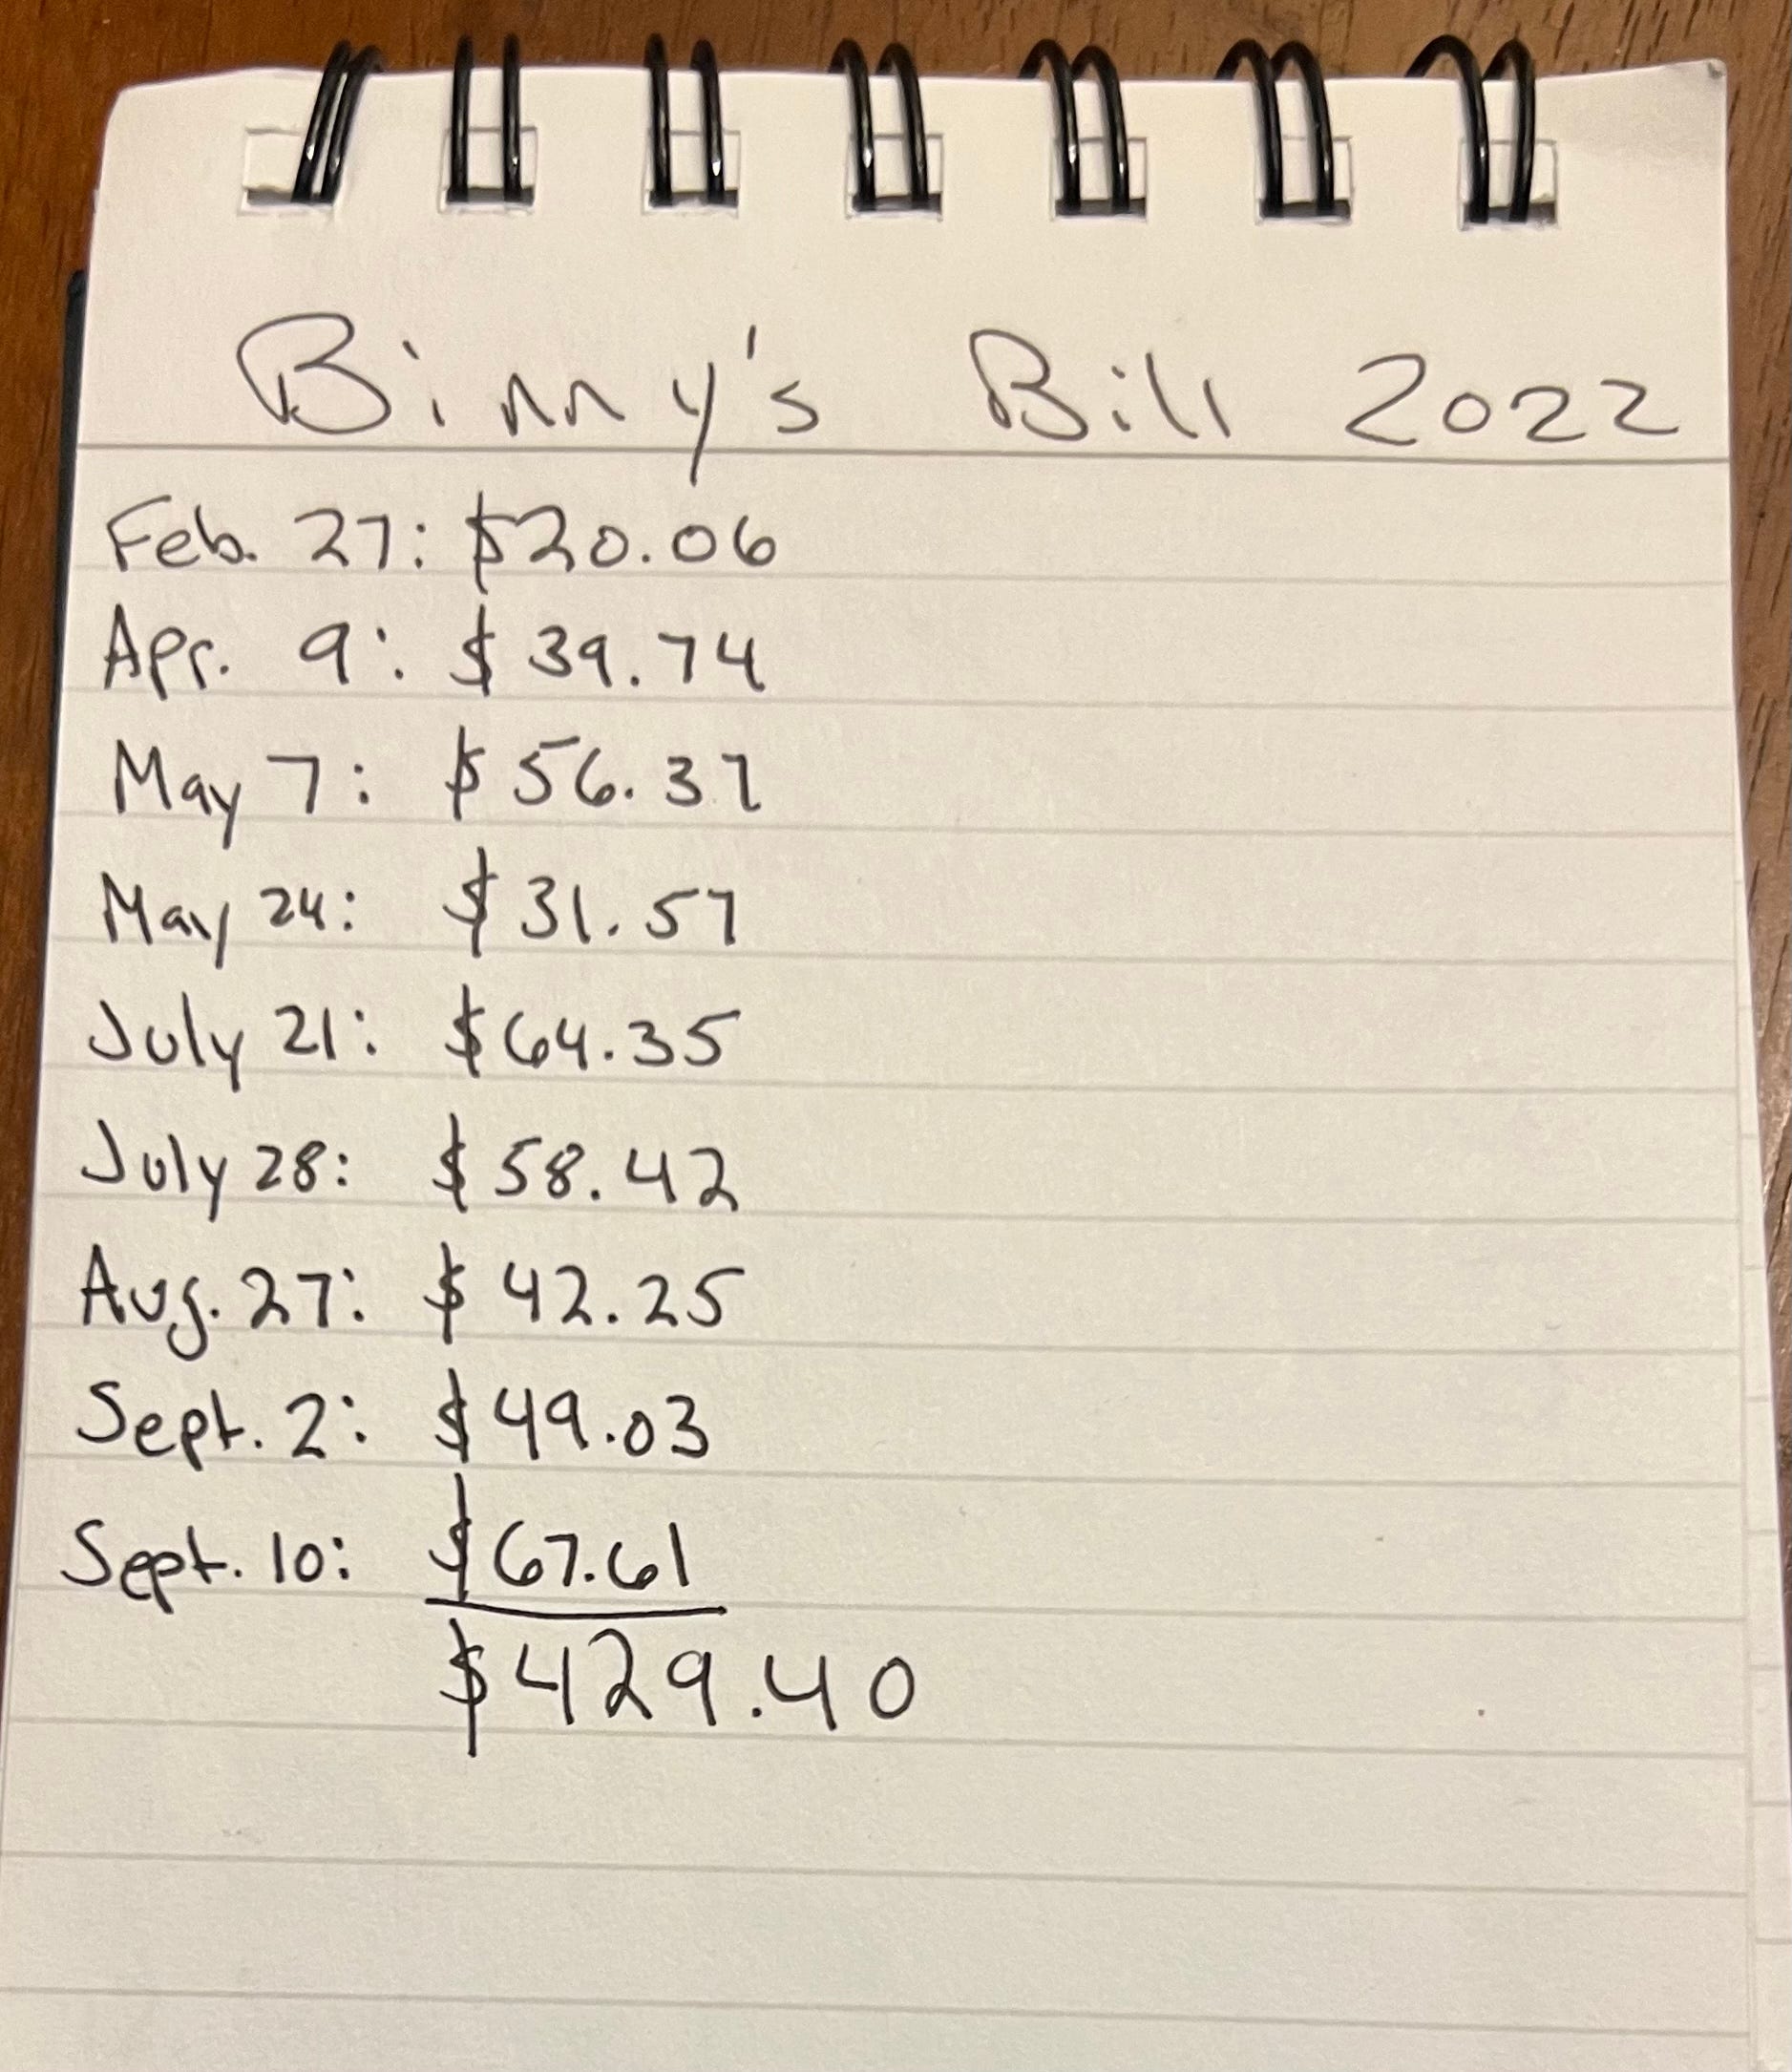 Binny's Bill 2022
Feb. 27: $20.06
Apr. 9: $39.74
May 7: $56.37
May 24: $31.57
July 21: $64.35
July 28: $58.42
Aug. 27: $42.25
Sept. 2: $49.03
Sept. 10: $67.61
$429.40